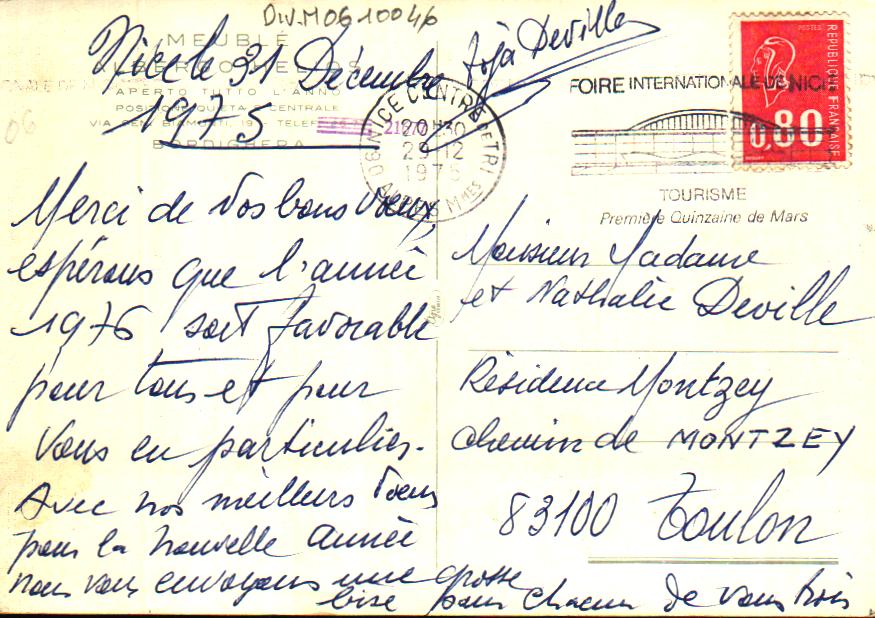 Div.M0610046
MEUBLÉ
ALBERGO HELIOS
APERTO TUTTO L'ANNO
POSIZIONE QUIETA E CENTRALE
BORDIGHERA
06
Nice le 31 Décembre
1975
Deville
NICE CENTRE DE TRI
20H30
29-12
1975
06 ALPES Mmes
FOIRE INTERNATIONALE DE NICE
TOURISME
Première Quinzaine de Mars
POSTES
REPUBLIQUE FRANÇAISE
0,80
Merci de vos bons vœux,
espérons que l'année
1976 soit favorable
pour tous et pour
vous en particulier.
Avec nos meilleurs vœux
pour la nouvelle année
nous vous envoyons une grosse
bise pour chacun de vous trois
Monsieur Madame
et Nathalie Deville
Résidence Montzey
chemin de MONTZEY
83100 Toulon